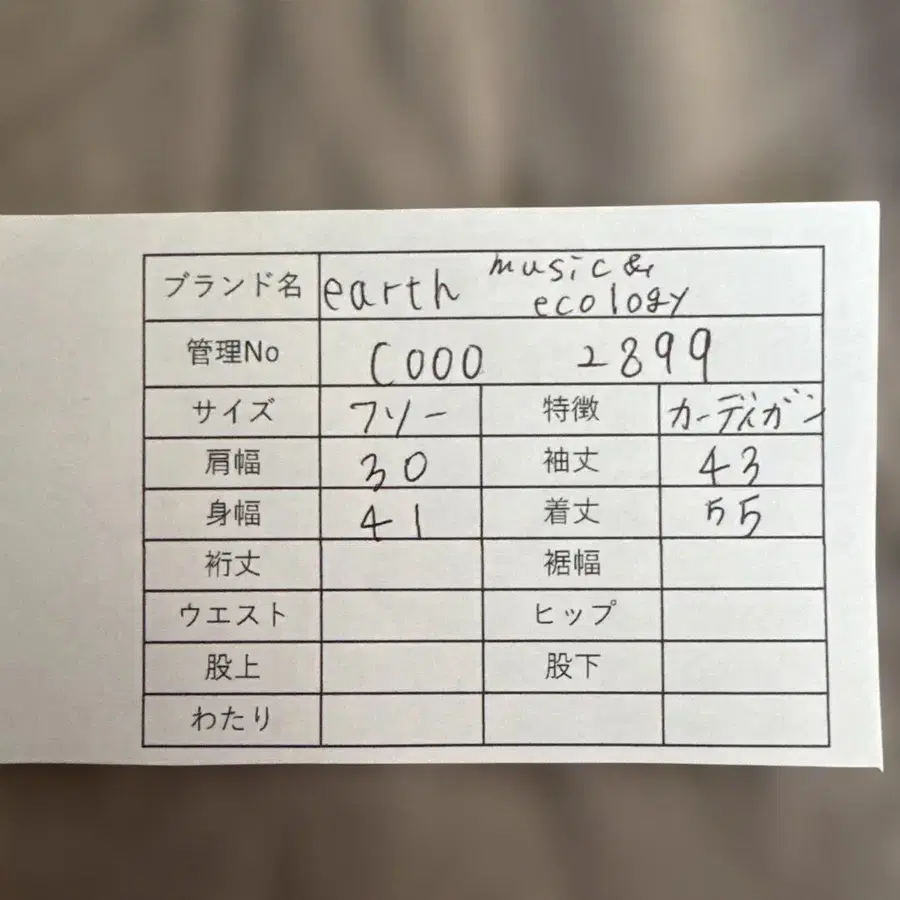 ブランド名 earth music & ecology
管理No C000 2899
サイズ フリー 特徴 カーディガン
肩幅 30 袖丈 43
身幅 41 着丈 55
裄丈 裾幅
ウエスト ヒップ
股上 股下
わたり